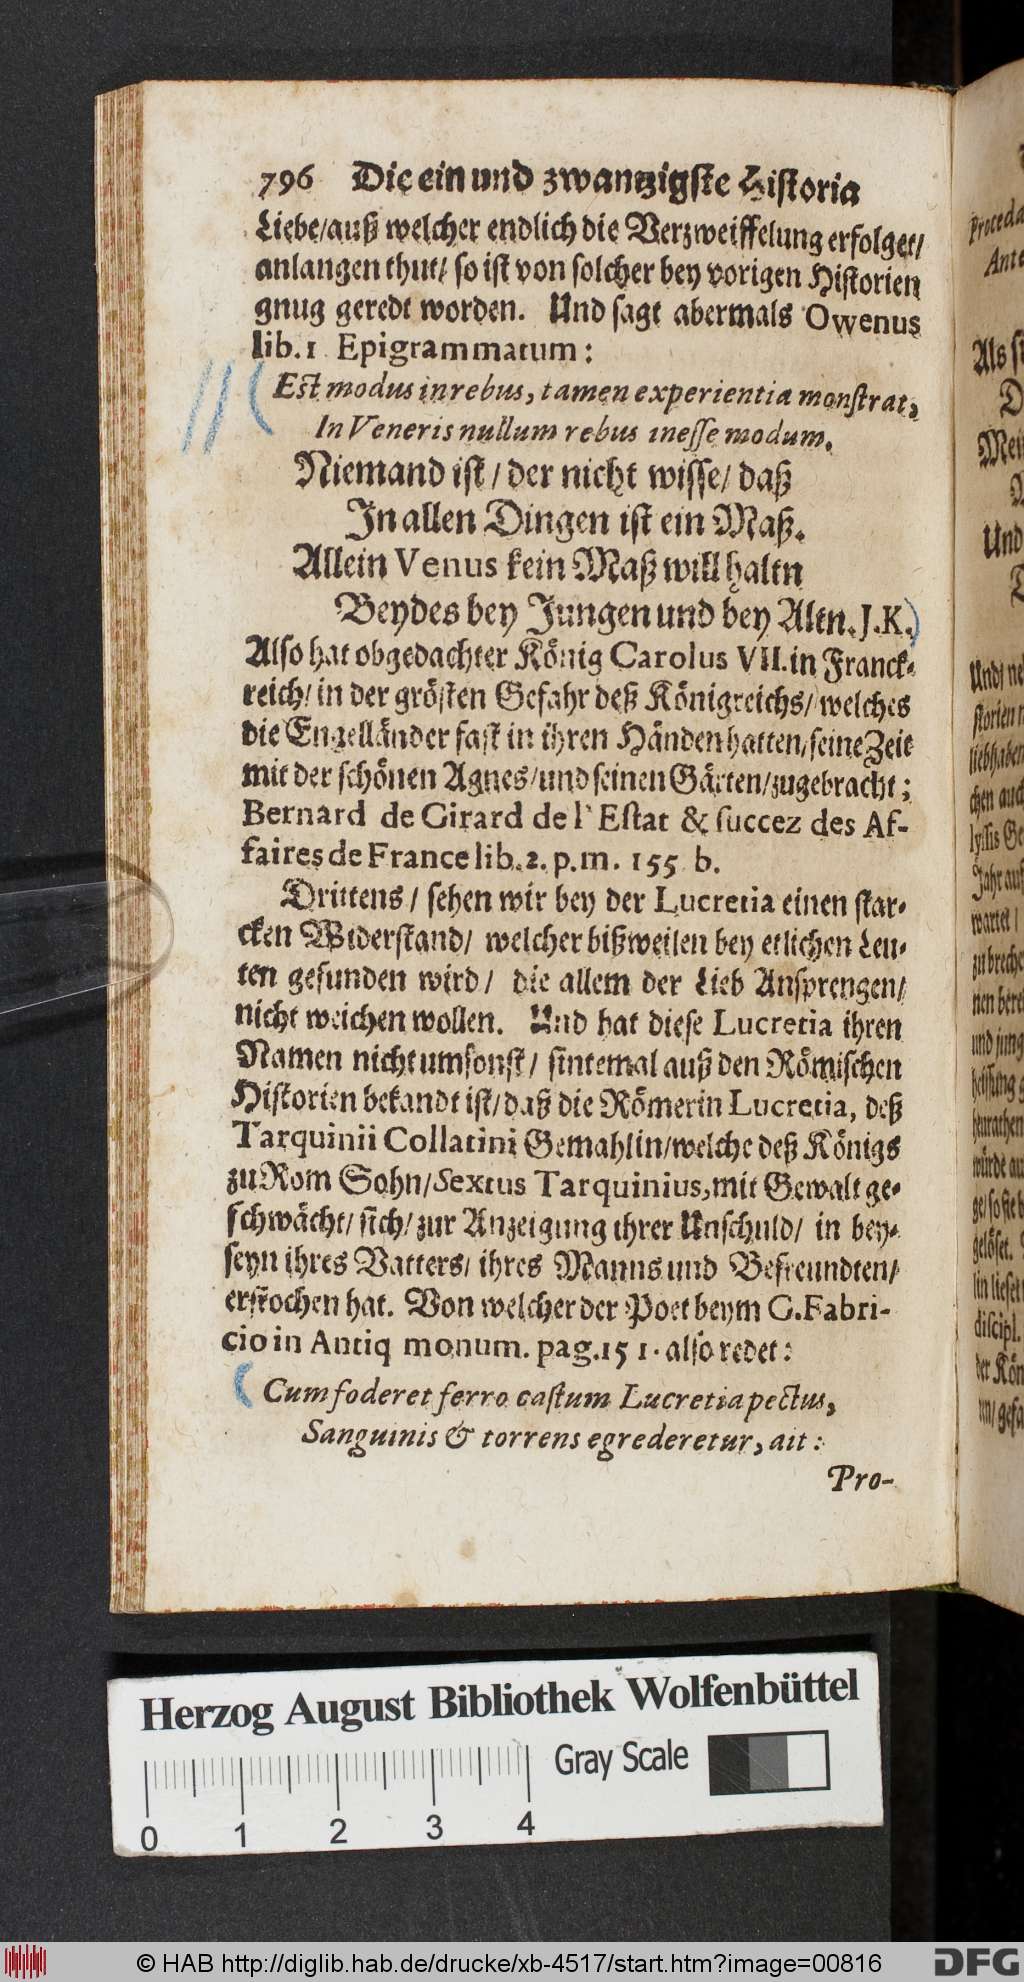 796 Die ein und zwantzigste Historia
Liebe/auß welcher endlich die Verzweiffelung erfolget/
anlangen thut/ so ist von solcher bey vorigen Historien
gnug geredt worden. Und sagt abermals Owenus
lib. 1 Epigrammatum:
Est modus in rebus, tamen experientia monstrat,
In Veneris nullum rebus inesse modum.
Niemand ist / der nicht wisse/ daß
In allen Dingen ist ein Maß.
Allein Venus kein Maß will haltn
Beydes bey Jungen und bey Altn. J. K.
Also hat obgedachter König Carolus VII. in Franck-
reich/ in der grösten Gefahr deß Königreichs/ welches
die Engelländer fast in ihren Händen hatten/ seine Zeit
mit der schönen Agnes/und seinen Gärten/zugebracht;
Bernard de Girard de l' Estat & succez des Af-
faires de France lib. 2. p. m. 155 b.
Drittens / sehen wir bey der Lucretia einen star-
cken Widerstand/ welcher bißweilen bey etlichen Leu-
ten gefunden wird/ die allem der Lieb Ansprengen/
nicht weichen wollen. Und hat diese Lucretia ihren
Namen nicht umsonst/ sintemal auß den Römischen
Historien bekandt ist/ daß die Römerin Lucretia, deß
Tarquinii Collatini Gemahlin/welche deß Königs
zu Rom Sohn/ Sextus Tarquinius, mit Gewalt ge-
schwächt/ sich/ zur Anzeigung ihrer Unschuld/ in bey-
seyn ihres Vatters/ ihres Manns und Befreundten/
erstochen hat. Von welcher der Poet beym G. Fabri-
cio in Antiq monum. pag. 151. also redet:
Cum foderet ferro castum Lucretia pectus,
Sanguinis & torrens egrederetur, ait:
Pro-
Proceda
Ante
Als si
D
Mein
Und
Und/ ne
storien
liebhaben
chen auch
lysis Ge
Jahr auf
wartet /
zu breche
nen berei
und jung
heissung g
heurathen
würde au
ge/ so sie b
gelöset.
lin lieset
discipl.
der Kön
un/ gefa
Herzog August Bibliothek Wolfenbüttel
Gray Scale
0 1 2 3 4
© HAB http://diglib.hab.de/drucke/xb-4517/start.htm?image=00816
DFG